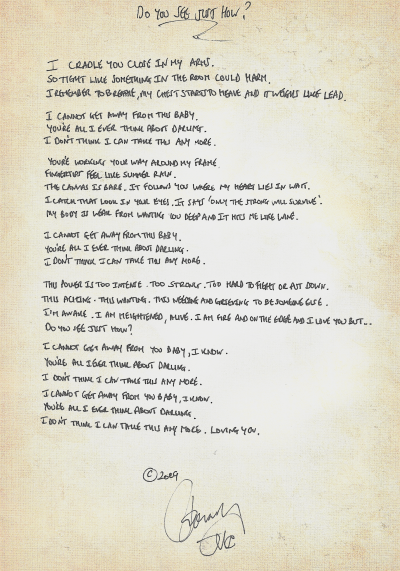 DO YOU SEE JUST HOW?
I CRADLE YOU CLOSE IN MY ARMS.
SO TIGHT LIKE SOMETHING IN THE ROOM COULD HARM.
I REMEMBER TO BREATHE, MY CHEST STARTS TO HEAVE AND IT WEIGHS LIKE LEAD.
I CANNOT GET AWAY FROM THIS BABY.
YOU'RE ALL I EVER THINK ABOUT DARLING.
I DON'T THINK I CAN TAKE THIS ANY MORE.
YOU'RE WORKING YOUR WAY AROUND MY FRAME.
FINGERTIPS FEEL LIKE SUMMER RAIN.
THE CANVAS IS BARE. IT FOLLOWS YOU WHERE MY HEART LIES IN WAIT.
I CATCH THAT LOOK IN YOUR EYES. IT SAYS 'ONLY THE STRONG WILL SURVIVE'.
MY BODY IS WEAK FROM WANTING YOU DEEP AND IT HITS ME LIKE WINE.
I CANNOT GET AWAY FROM THIS BABY.
YOU'RE ALL I EVER THINK ABOUT DARLING.
I DON'T THINK I CAN TAKE THIS ANY MORE.
THIS POWER IS TOO INTENSE. TOO STRONG. TOO HARD TO FIGHT OR PUT DOWN.
THIS ACHING. THIS WANTING. THIS NEEDING AND GRIEVING TO BE SOMEONE ELSE.
I'M AWAKE. I AM HEIGHTENED, ALIVE. I AM FIRE AND ON THE EDGE AND I LOVE YOU BUT...
DO YOU SEE JUST HOW?
I CANNOT GET AWAY FROM YOU BABY, I KNOW.
YOU'RE ALL I EVER THINK ABOUT DARLING.
I DON'T THINK I CAN TAKE THIS ANY MORE.
I CANNOT GET AWAY FROM YOU BABY, I KNOW.
YOU'RE ALL I EVER THINK ABOUT DARLING.
I DON'T THINK I CAN TAKE THIS ANY MORE. LOVING YOU.
© 2009